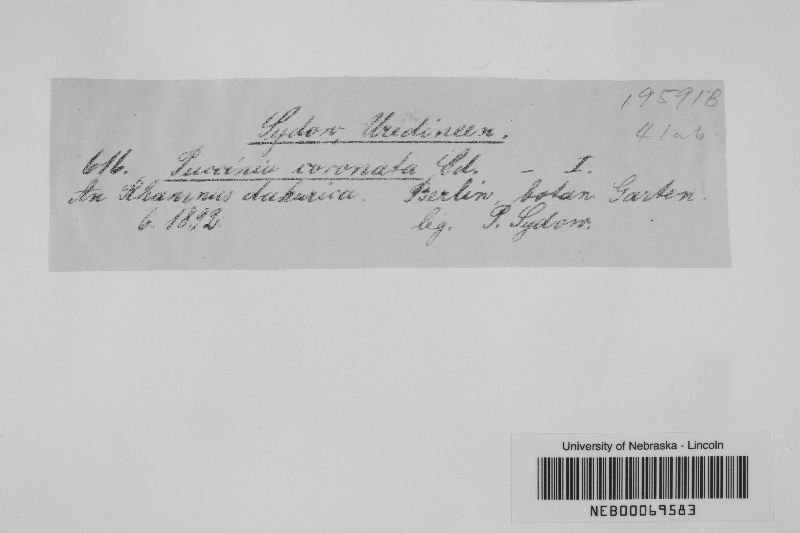 19591B
Sydow, Uredineen.
616. Puccinia coronata Cd. – I.
An Rhamnus dahurica. Berlin, botan. Garten.
6. 1892. leg. P. Sydow.
University of Nebraska - Lincoln
NEB00069583